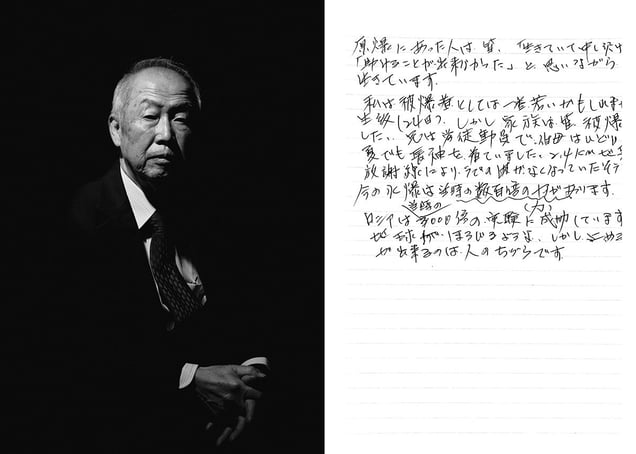 原爆にあった人は皆、「生きていて申し訳け
「助けることが出来なかった」と思いながら
生きています。
私は被爆者としては一番若いかもしれませ
生後124日?。しかし家族は皆、被爆
した。兄は学徒動員で、伯母はひどり
夏でも長袖を着ていました。2.4km
放射線により、うでの
今の水爆は当時の数百倍の力があります。
当時の (力)
ロシアは3000倍の実験に成功しています
地球がほろびるような、しかし止める
が出来るのは人のちからです